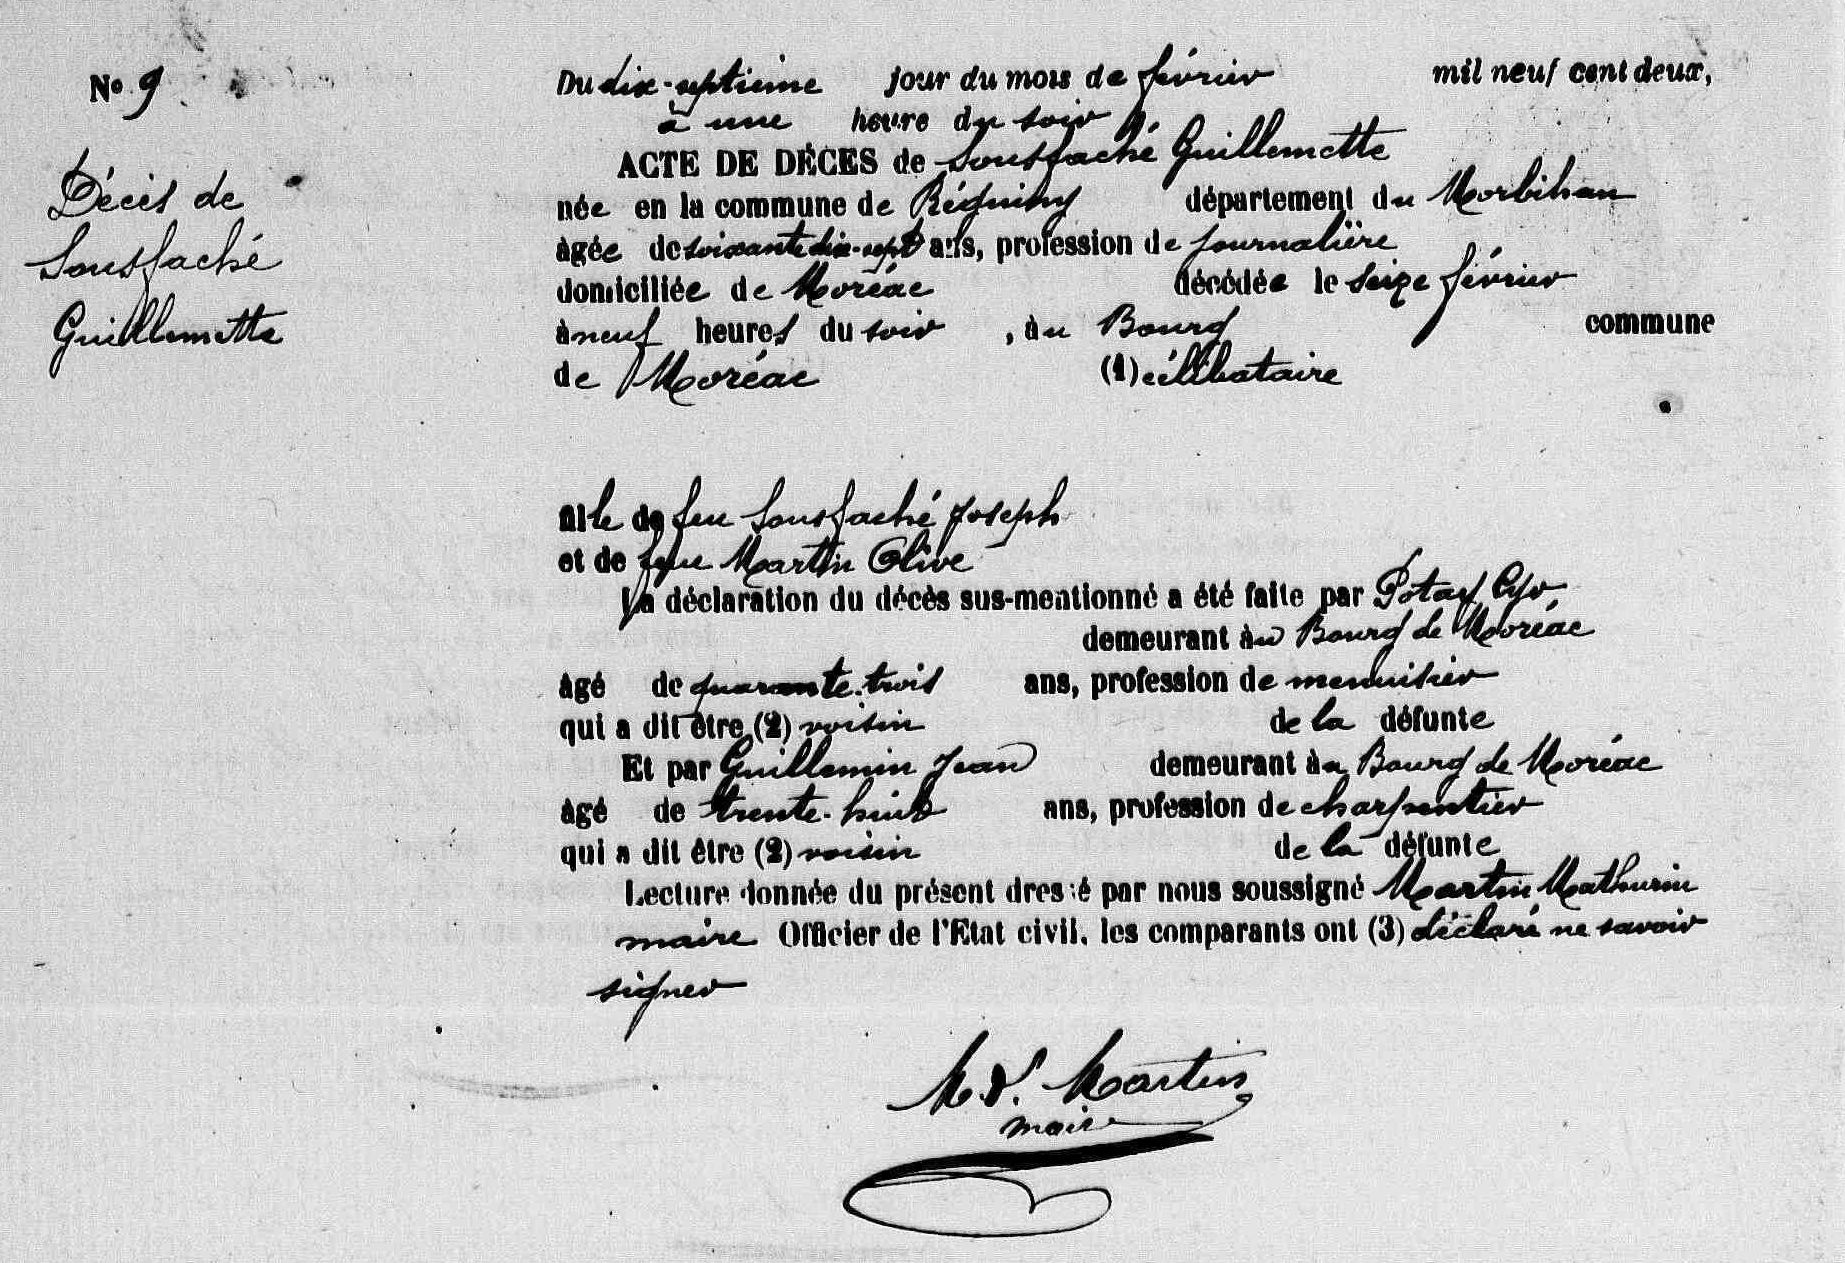 No 9
Décès de
Sousfaché
Guillemette
Du dix-septième jour du mois de février mil neuf cent deux,
à une heure du soir
ACTE DE DÉCÈS de Sousfaché Guillemette
née en la commune de Réguiny département du Morbihan
âgée de soixante dix-sept ans, profession de journalière
domiciliée de Moréac décédée le seize février
à neuf heures du soir, au Bourg commune
de Moréac (1) célibataire
fille de feu Sousfaché Joseph
et de feue Martin Olive
La déclaration du décès sus-mentionné a été faite par
demeurant au Bourg de Moréac
âgé de quarante-trois ans, profession de menuisier
qui a dit être (2) voisin de la défunte
Et par Guillemin Jean demeurant au Bourg de Moréac
âgé de trente-huit ans, profession de charpentier
qui a dit être (2) voisin de la défunte
Lecture donnée du présent dressé par nous soussigné Martin Mathurin
maire Officier de l'Etat civil, les comparants ont (3) déclaré ne savoir
signer
Martin
maire